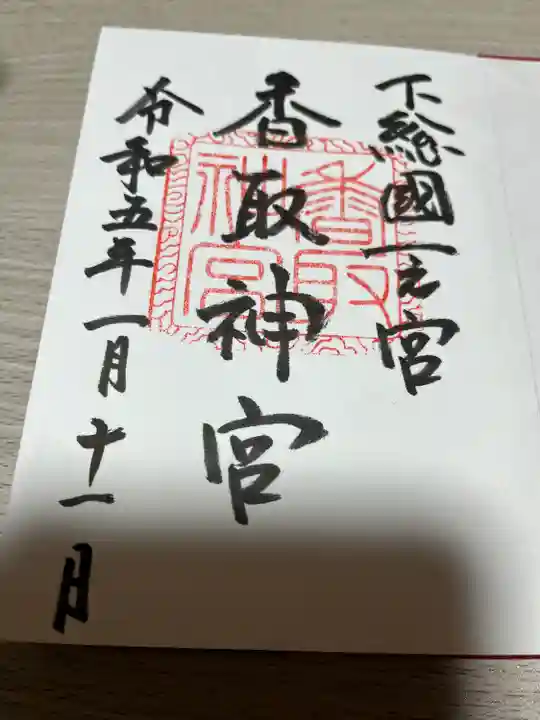 下総國一之宮
香取神宮
香取神宮
令和五年一月十一月